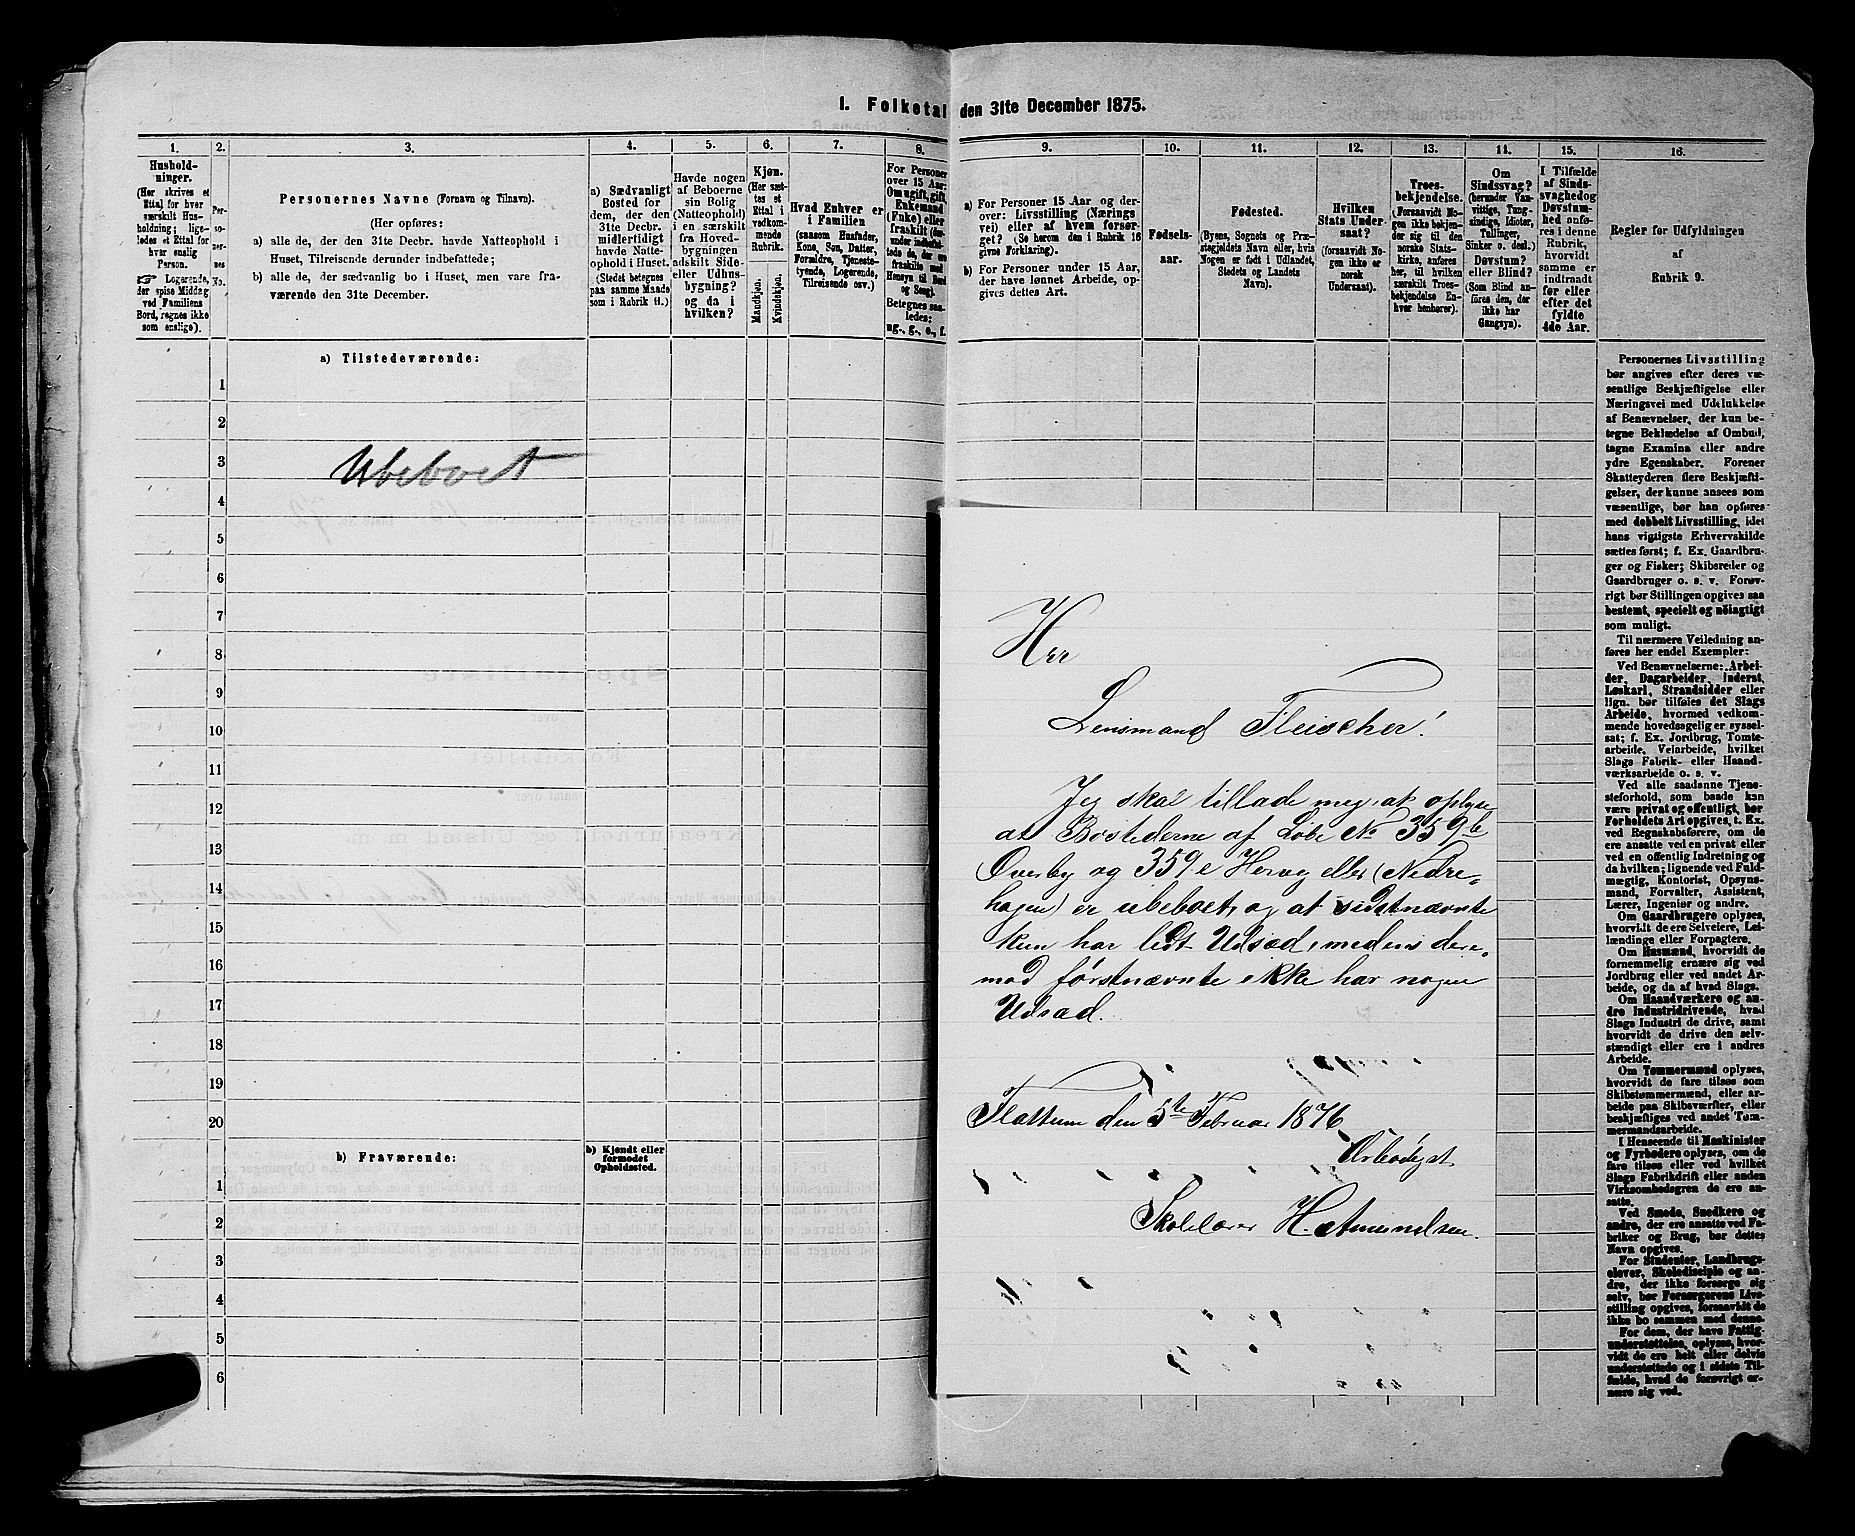 1. Folketal den 31te December 1875.
1.
Hushold-
ninger.
(Her skrives et
Ettal for hver
særskilt Hus-
holdning; lige-
ledes et Ettal for
hver enslig
Person.
Logerende,
der spise Middag
ved Familiens
Bord, regnes ikke
som enslige).
2.
Per-
so-
ner-
nes
No.
3.
Personernes Navne (Fornavn og Tilnavn).
(Her opføres:
a) alle de, der den 31te Decbr. havde Natteophold i
Huset, Tilreisende derunder indbefattede;
b) alle de, der sædvanlig bo i Huset, men vare fra-
værende den 31te December.
4.
a) Sædvanligt
Bosted for
dem, der den
31te Decbr.
midlertidigt
havde Natte-
ophold i Huset.
(Stedet betegnes
paa samme Maade
som i Rubrik 11.)
5.
Havde nogen
af Beboerne
sin Bolig
(Natteophold)
i en særskilt
fra Hoved-
bygningen
adskilt Side-
eller Udhus-
bygning?
og da i
hvilken?
6.
Kjøn.
(Her sæt-
tes et
Ettal i
vedkom-
mende
Rubrik.
Mandkjøn.
Kvindekjøn.
7.
Hvad Enhver er
i Familien
(saasom Husfader,
Kone, Søn, Datter,
Forældre, Tjeneste-
tyende, Logerende,
Tilreisende osv.)
8.
For Personer
over 15 Aar:
Om ugift, gift,
Enkemand
(Enke) eller
fraskilt
Betegnes saa-
ledes:
ug., g., e., f.
9.
a) For Personer 15 Aar og der-
over: Livsstilling (Nærings
vei) eller af hvem forsør-
get? (Se herom den i Rubrik 16
givne Forklaring).
b) For Personer under 15 Aar,
der have lønnet Arbeide, op-
gives dettes Art.
10.
Fødsels-
aar.
11.
Fødested.
(Byens, Sognets og Præ-
stegjeldets Navn eller, hvis
Nogen er født i Udlandet,
Stedets og Landets
Navn).
12.
Hvilken
Stats Under-
saat?
(forsaavidt No-
gen ikke er
norsk
Undersaat).
13.
Troes-
bekjendelse.
(Forsaavidt No-
gen ikke bekjen-
der sig til den
norske Stats-
kirke, anføres
her, til hvilken
særskilt Troes-
bekjendelse En-
hver henhører).
14.
Om
Sindssvag?
(herunder Van-
vittige, Tung-
sindige, Idioter,
Tullinger,
Sinker o. desl.)
Døvstum?
eller Blind?
(Som Blind an-
føres den, der
ikke har
Gangsyn).
15.
I Tilfælde
af Sinds-
svaghed og
Døvstum-
hed anfø-
res i denne
Rubrik,
hvorvidt
samme er
indtraadt
før eller
efter det
fyldte
4de Aar.
16.
Regler for Udfyldningen
af
Rubrik 9.
a) Tilstedeværende:
1
2
3
Ubeboet
4
5
6
7
8
9
10
11
12
13
14
15
16
17
18
19
20
b) Fraværende:
b) Kjendt eller
formodet
Opholdssted.
1
2
3
4
5
6
Herr
Lensmand Fleischer!
Jeg skal tillade meg, at oplyse
at Bostederne af Løbe No 359b
Overby og 359e Hervog eller (Nedre-
hagen) er ubeboet, og at sidstnævnte
kun har lidt Udsæd, medens dere-
mod førstnævnte ikke har nogen
Udsæd.
Flattum den 5te Februar 1876
Ærbødigst
Skolelærer H. Amundsen.
Personernes Livsstilling
bør angives efter deres væ-
sentlige Beskjæftigelse eller
Næringsvei med Udelukkelse
af Benævnelser, der kun be-
tegne Beklædelse af Ombud,
tagne Examina eller andre
ydre Egenskaber. Forener
Skatteyderen flere Beskjæfti-
gelser, der kunne ansees som
væsentlige, bør han opføres
med dobbelt Livsstilling, idet
hans vigtigste Erhvervskilde
sættes først; f. Ex. Gaardbru-
ger og Fisker; Skibsreder og
Gaardbruger o. s. v. Forøv-
rigt bør Stillingen opgives saa
bestemt, specielt og nøiagtigt
som muligt.
Til nærmere Veiledning an-
føres her endel Exempler:
Ved Benævnelserne: Arbei-
der, Dagarbeider, Inderst,
Løskarl, Strandsidder eller
lign. bør tilføies det Slags
Arbeide, hvormed vedkom-
mende hovedsagelig er syssel-
sat; f. Ex. Jordbrug, Tomte-
arbeide, Veiarbeide, hvilket
Slags Fabrik- eller Haand-
værksarbeide o. s. v.
Ved alle saadanne Tjene-
steforhold, som baade kan
være privat og offentligt, bør
Forholdets Art opgives, t. Ex.
ved Regnskabsførere, om de
ere ansatte ved en privat eller
ved en offentlig Indretning og
da hvilken; lignende ved Fuld-
mægtig, Kontorist, Opsyns-
mand, Forvalter, Assistent,
Lærer, Ingeniør og andre.
Om Gaardbrugere oplyses,
hvorvidt de ere Selveiere, Lei-
lændinge eller Forpagtere.
Om Husmænd, hvorvidt de
fornemmelig ernære sig ved
Jordbrug eller ved andet Ar-
beide, og da af hvad Slags.
Om Haandværkere og an-
dre Industridrivende, hvad
Slags Industri de drive, samt
hvorvidt de drive den selv-
stændigt eller ere i andres
Arbeide.
Om Tømmermænd oplyses,
hvorvidt de fare tilsøs som
Skibstømmermænd, eller ar-
beide paa Skibsværfter, eller
beskjæftiges ved andet Tøm-
mermandsarbeide.
I Henseende til Maskinister
og Fyrbødere oplyses, om de
fare tilsøs eller ved hvilket
Slags Fabrikdrift eller anden
Virksomhed de ere an-
satte.
Ved Smede, Snedkere og
andre, der ere ansatte ved Fa-
briker og Brug, bør dettes
Navn opgives.
For Studenter, Landbrugs-
elever, Skoledisciple og an-
dre, der ikke forsørge sig
selv, bør Forsørgerens Livs-
stilling opgives, forsaavidt de
ikke bo sammen med denne.
For dem, der have Fattig-
understøttelse, oplyses, hvor-
vidt de ere helt eller delvis
understøttede og i sidste Til-
fælde, hvad de forøvrigt er-
nære sig ved.